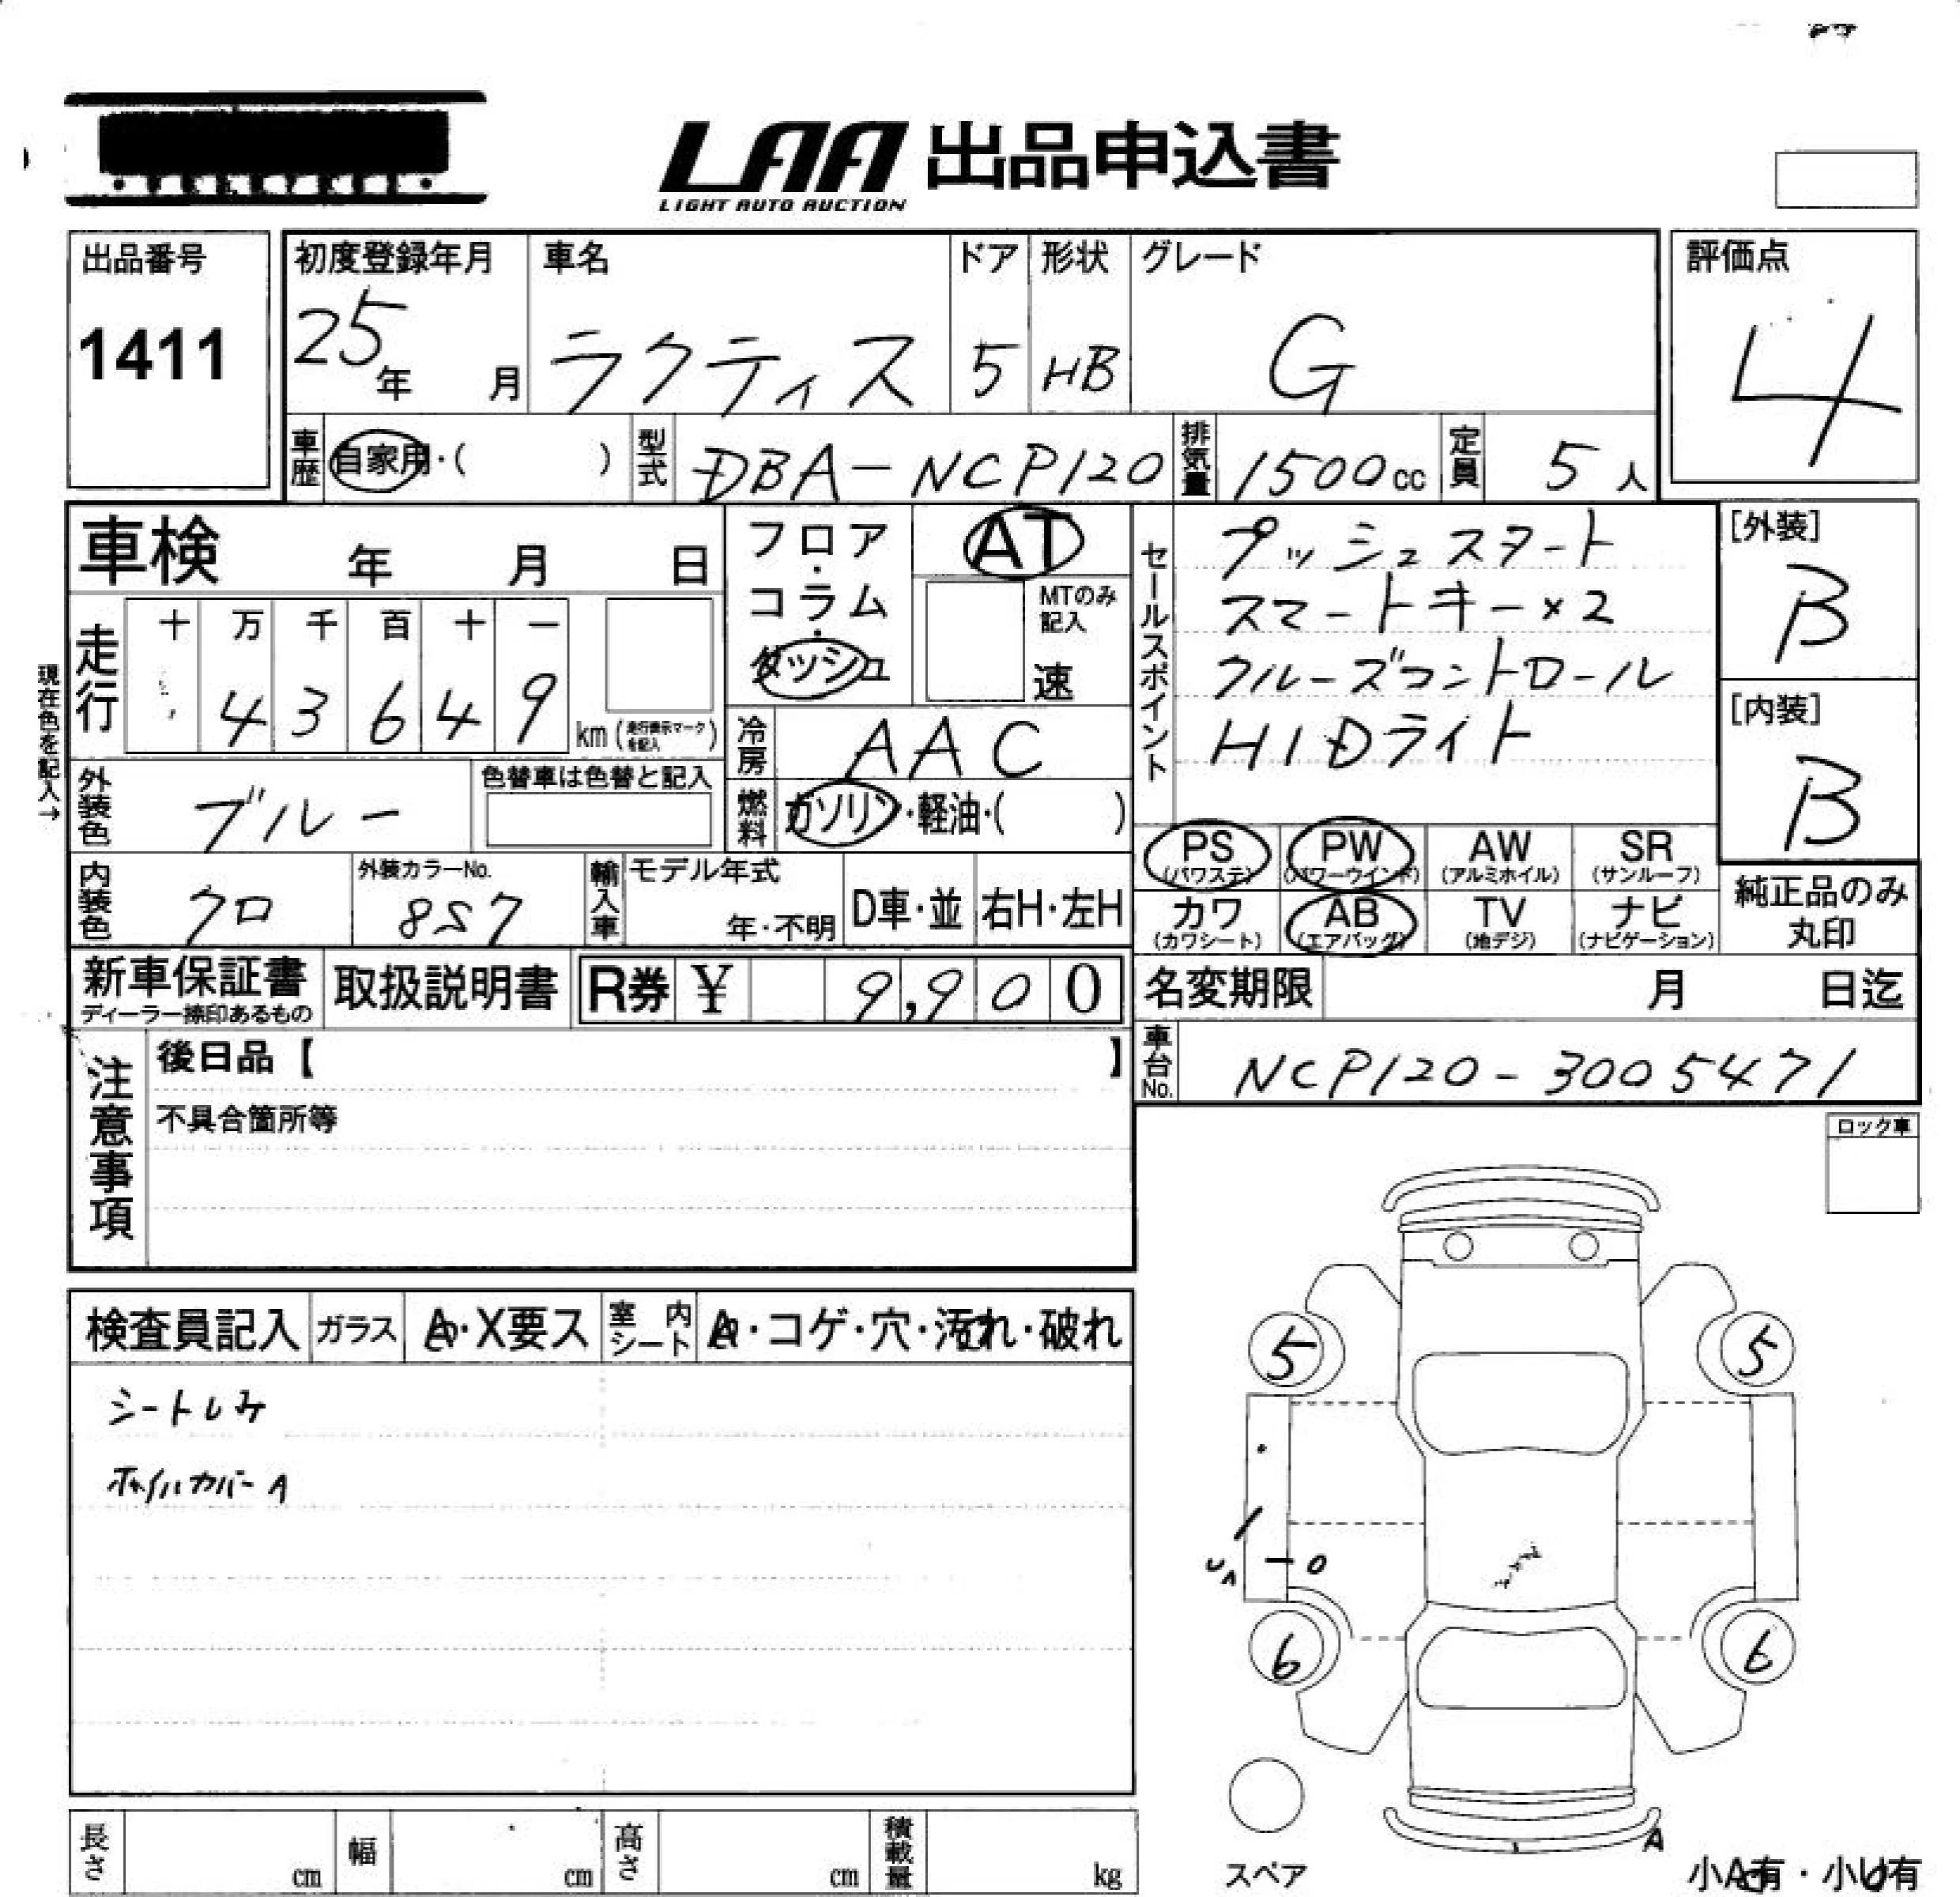 LAA 出品申込書
LIGHT AUTO AUCTION
出品番号
1411
初度登録年月
25年 月
車名
ラクティス
ドア
5
形状
HB
グレード
G
評価点
4
車歴 自家用・( )
型式 DBA-NCP120
排気量 1500cc
定員 5人
車検 年 月 日
フロア・コラム・ダッシュ
AT
MTのみ記入
速
セールスポイント
プッシュスタート
スマートキー×2
クルーズコントロール
HIDライト
[外装]
B
[内装]
B
現在色を記入→
走行
十 万 千 百 十 一
4 3 6 4 9
km (走行表示マークを記入)
冷房 AAC
燃料 ガソリン・軽油・( )
外装色 ブルー
色替車は色替と記入
内装色 クロ
外装カラーNo.
8S7
輸入車
モデル年式
年・不明
D車・並
右H・左H
PS (パワステ)
PW (パワーウインド)
AW (アルミホイル)
SR (サンルーフ)
カワ (カワシート)
AB (エアバッグ)
TV (地デジ)
ナビ (ナビゲーション)
純正品のみ
丸印
新車保証書
ディーラー捺印あるもの
取扱説明書
R券 ¥ 9,900
名変期限 月 日迄
車台No. NCP120-3005471
注意事項
後日品【 】
不具合箇所等
ロック車
検査員記入
ガラス
A・X要ス
室内シート
A・コゲ・穴・汚れ・破れ
シートしみ
ホイルカバーA
5 5
6 6
A
スペア
長さ cm
幅 cm
高さ cm
積載量 kg
小A有・小U有